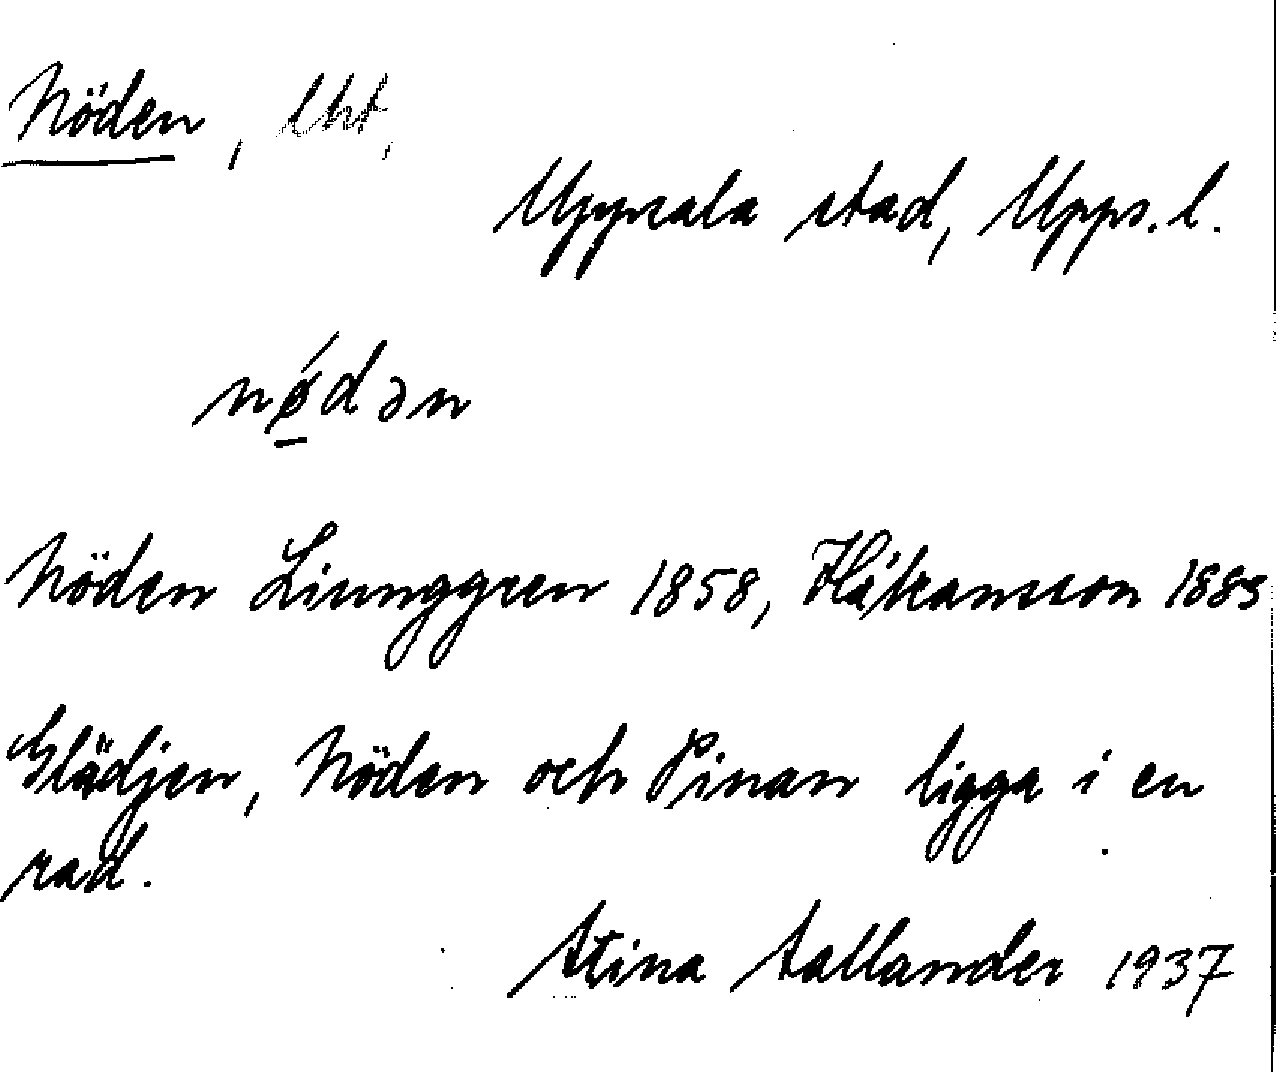 Nöden, lht,
Uppsala stad, Upps. l.
nǿ̱dən
Nöden Liunggren 1858, Håkansson 1883
Glädjen, Nöden och Pinan ligga i en
rad.
Stina Sallander 1937